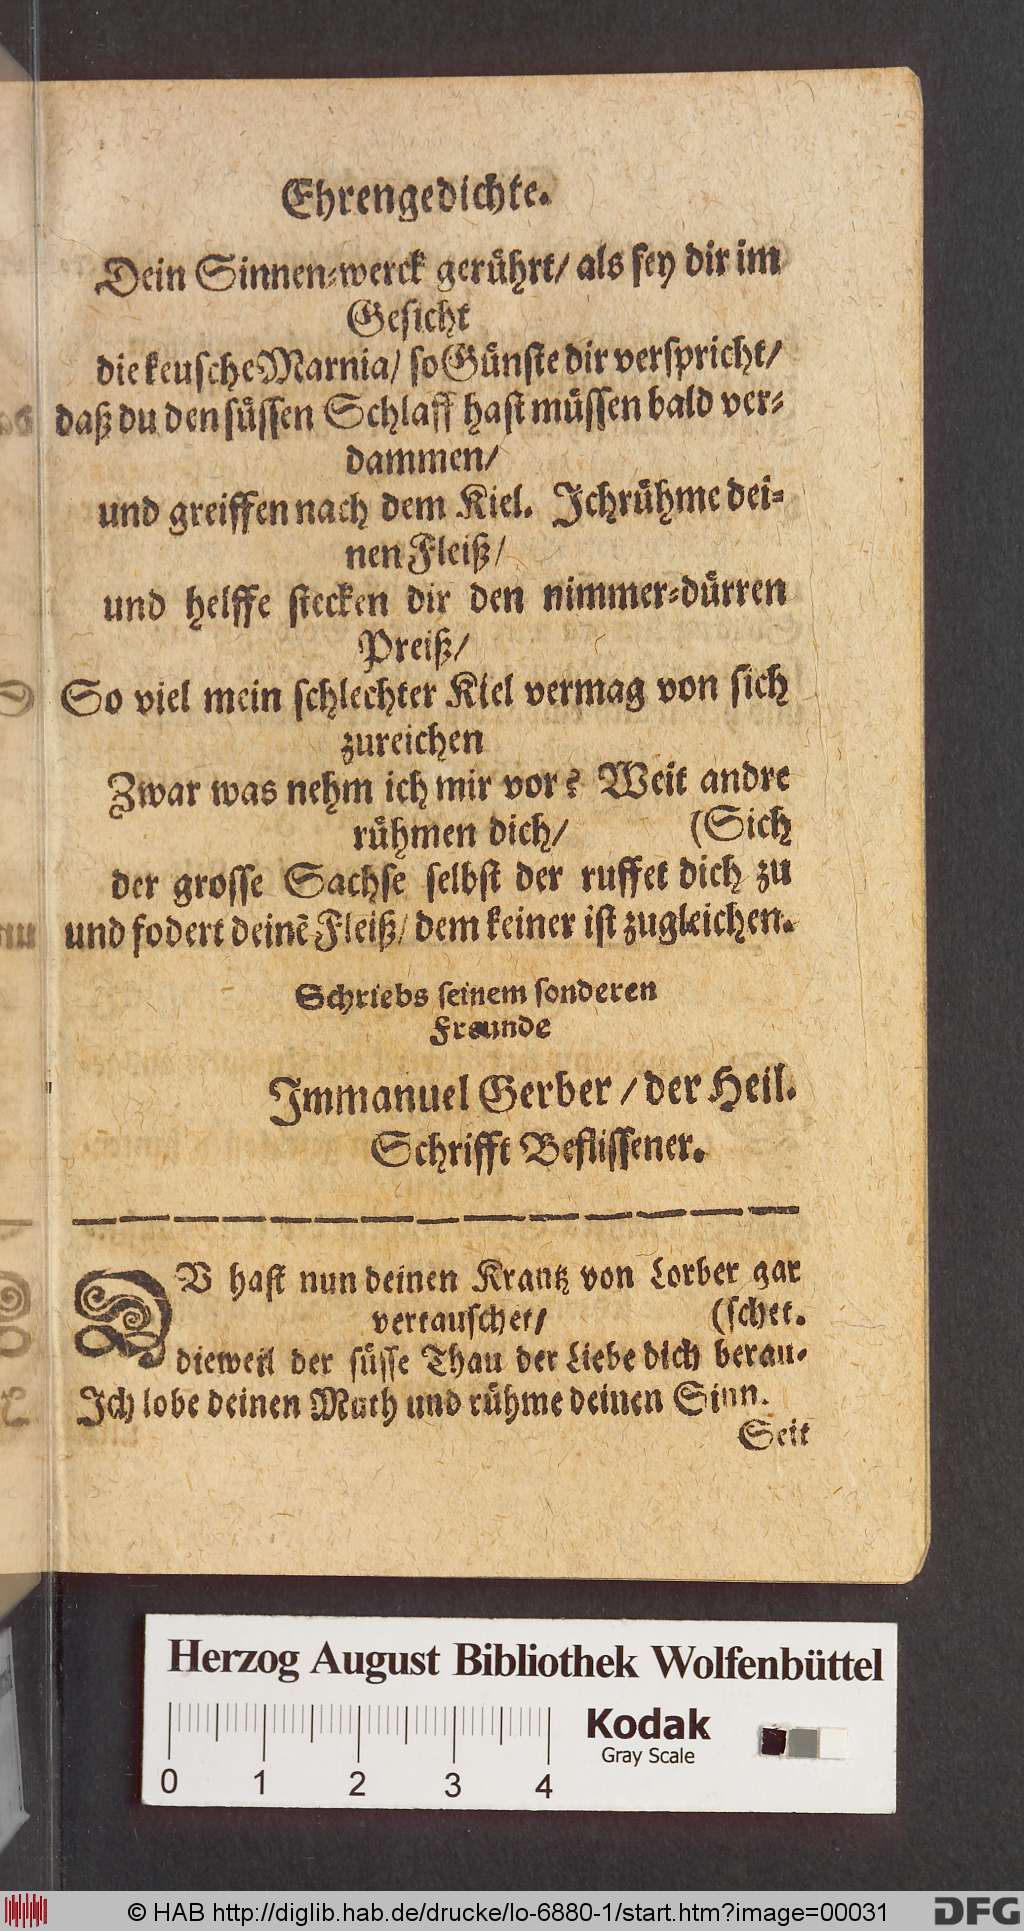 Ehrengedichte.
Dein Sinnen-werck gerührt/ als sey dir im
Gesicht
die keusche Marnia/ so Günste dir verspricht/
daß du den süssen Schlaff hast müssen bald ver-
dammen/
und greiffen nach dem Kiel. Ich rühme dei-
nen Fleiß/
und helffe stecken dir den nimmer-dürren
Preiß/
So viel mein schlechter Kiel vermag von sich
zureichen
Zwar was nehm ich mir vor? Weit andre
rühmen dich/ (Sich
der grosse Sachse selbst der ruffet dich zu
und fodert deinẽ Fleiß/ dem keiner ist zugleichen.
Schriebs seinem sonderen
Freunde
Immanuel Gerber / der Heil.
Schrifft Beflissener.
DU hast nun deinen Krantz von Lorber gar
vertauschet/ (schet.
dieweil der süsse Thau der Liebe dich berau-
Ich lobe deinen Muth und rühme deinen Sinn.
Seit
Herzog August Bibliothek Wolfenbüttel
Kodak
Gray Scale
0 1 2 3 4
© HAB http://diglib.hab.de/drucke/lo-6880-1/start.htm?image=00031
DFG